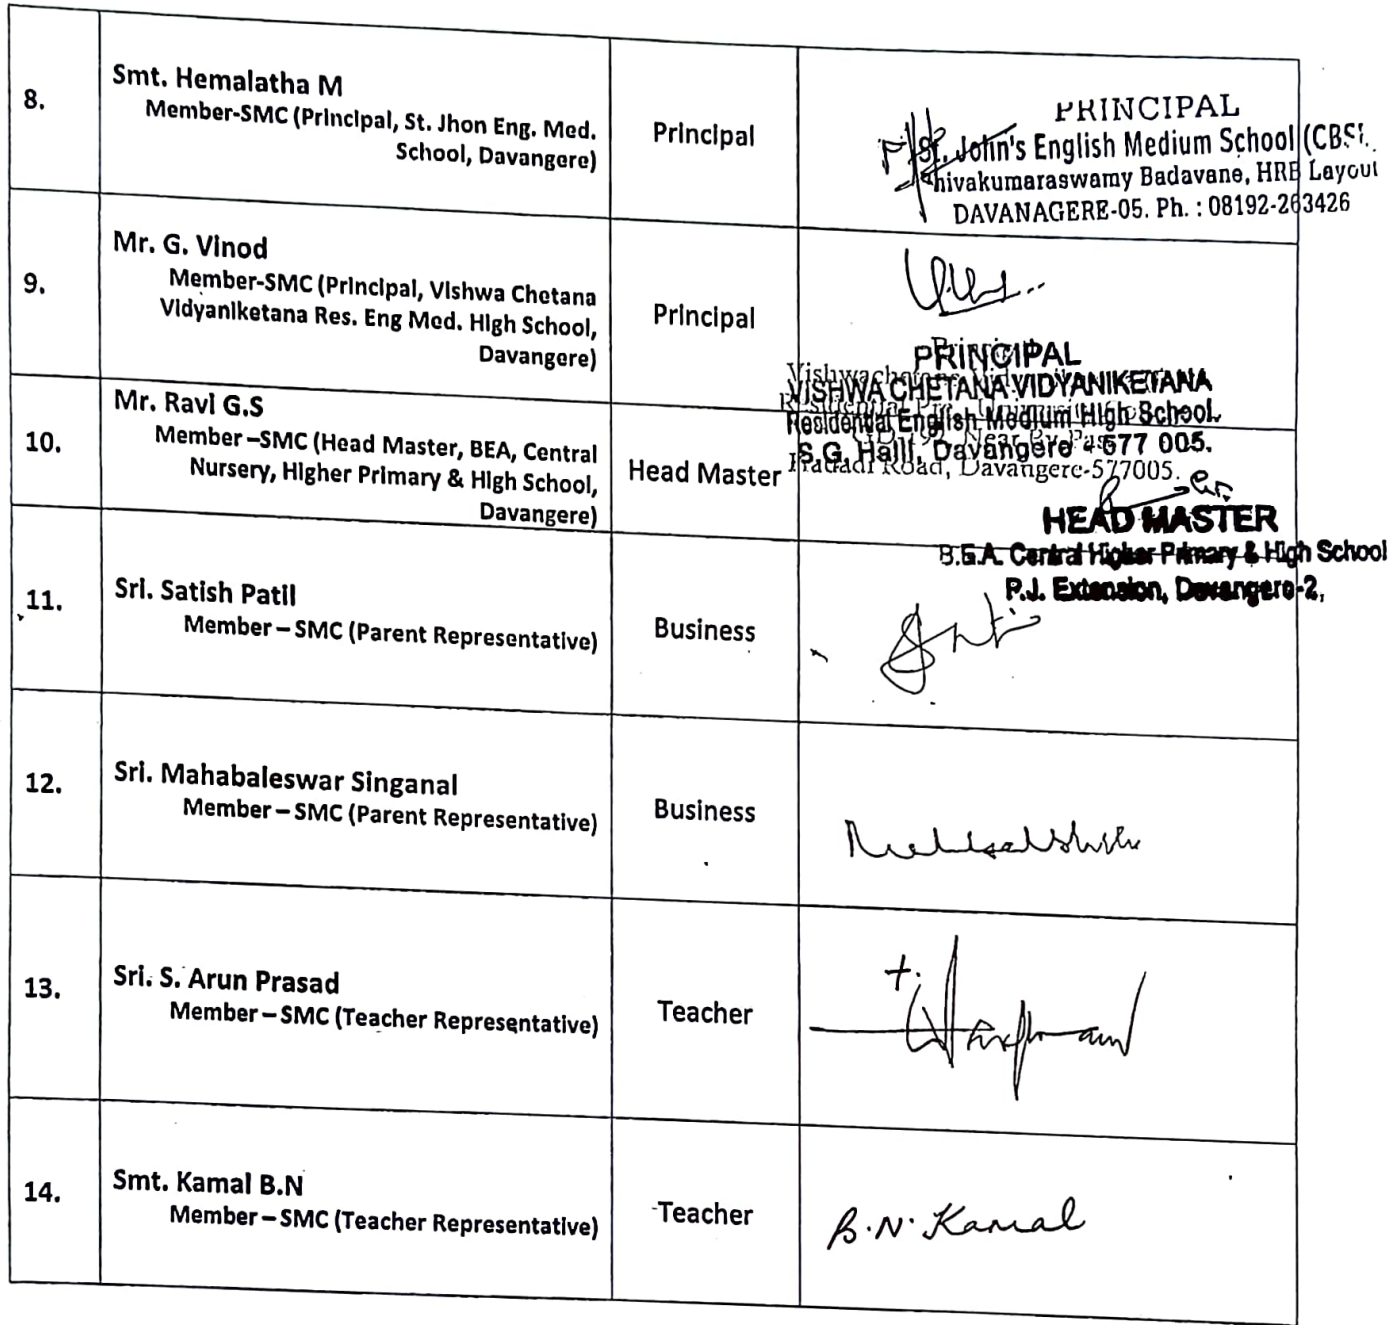 8.
Smt. Hemalatha M
Member-SMC (Principal, St. Jhon Eng. Med.
School, Davangere)
Principal
PRINCIPAL
St. John's English Medium School (CBSE
hivakumaraswamy Badavane, HRB Layout
DAVANAGERE-05. Ph. : 08192-263426
9.
Mr. G. Vinod
Member-SMC (Principal, Vishwa Chetana
Vidyaniketana Res. Eng Med. High School,
Davangere)
Principal
PRINCIPAL
VISHWA CHETANA VIDYANIKETANA
Residential English Medium High School.
S.G. Halli, Davangere - 577 005.
Road, Davangere-577005.
10.
Mr. Ravi G.S
Member –SMC (Head Master, BEA, Central
Nursery, Higher Primary & High School,
Davangere)
Head Master
HEAD MASTER
B.E.A. Central Higher Primary & High School
P.J. Extension, Davangere-2,
11.
Sri. Satish Patil
Member – SMC (Parent Representative)
Business
12.
Sri. Mahabaleswar Singanal
Member – SMC (Parent Representative)
Business
13.
Sri. S. Arun Prasad
Member – SMC (Teacher Representative)
Teacher
14.
Smt. Kamal B.N
Member – SMC (Teacher Representative)
Teacher
B.N. Kamal